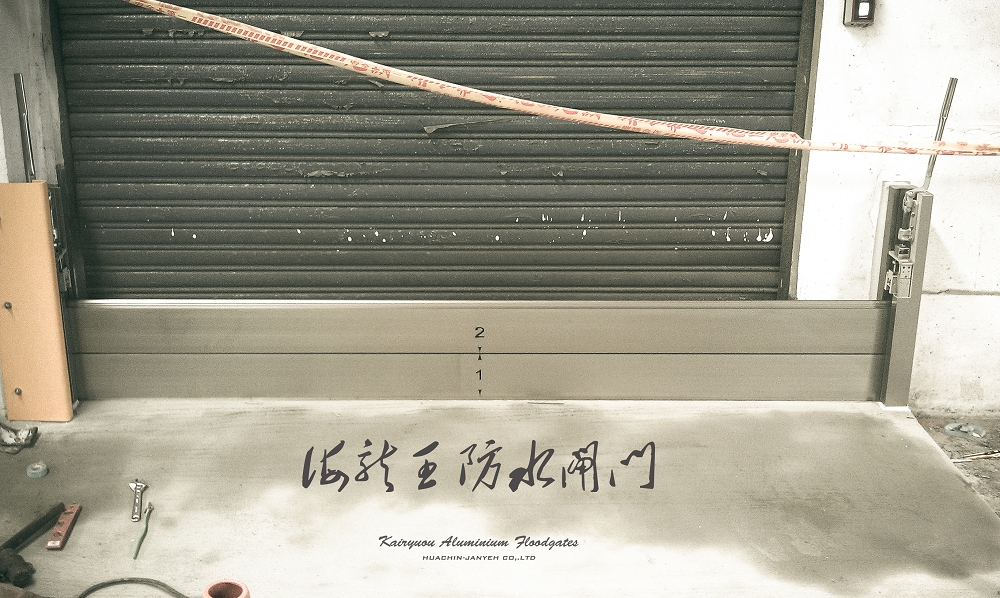 2
1
海龍王防水閘門
Kairyuou Aluminium Floodgates
HUACHIN-JANYEH CO,.LTD